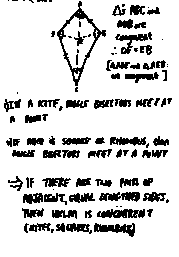 Δ's ABC and
ADB are
congruent
∴ DF = EB
congruent]
① IN A KITE, ANGLE BISECTORS MEET AT
A POINT
IF ABCD IS SQUARE OR RHOMBUS, then
ANGLE BISECTORS MEET AT A POINT
⇒ IF THERE ARE TWO PAIRS OF
ADJACENT, EQUAL LENGTHED SIDES,
THEN IS CONCURRENT
(KITES, SQUARES, RHOMBUS)